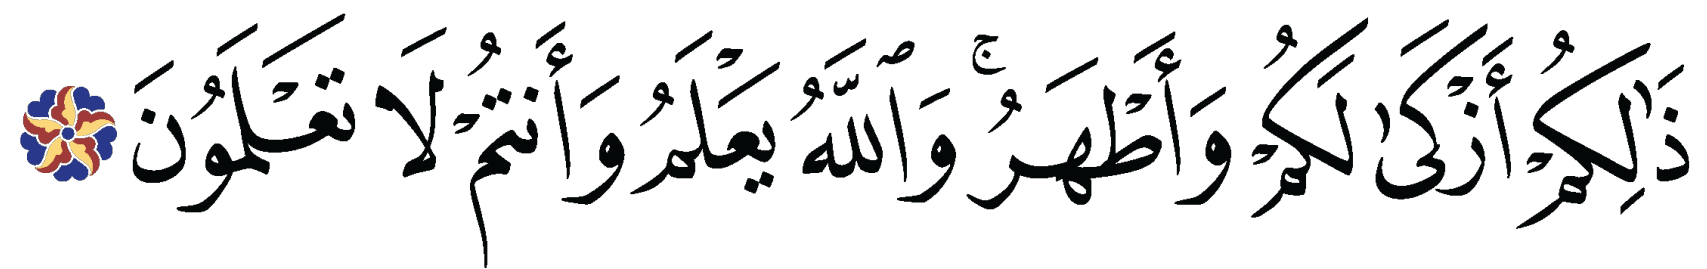 ذَٰلِكُمْ أَزْكَىٰ لَكُمْ وَأَطْهَرُ ۚ وَٱللَّهُ يَعْلَمُ وَأَنتُمْ لَا تَعْلَمُونَ